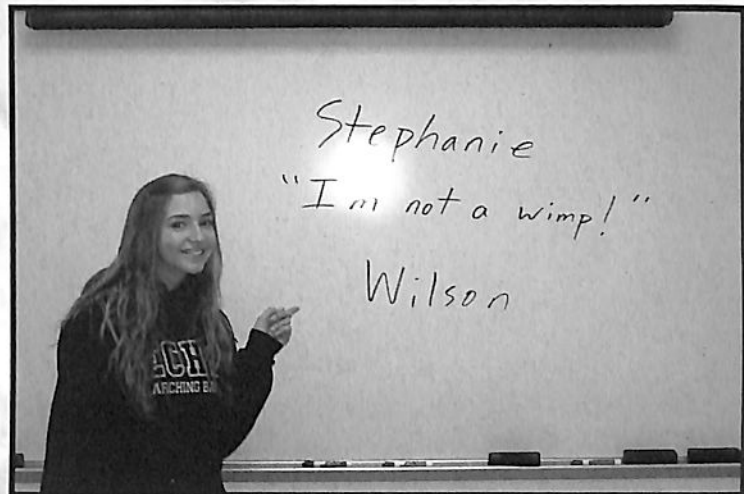 Stephanie
"I'm not a wimp!"
Wilson
ECH
ARCHING BA